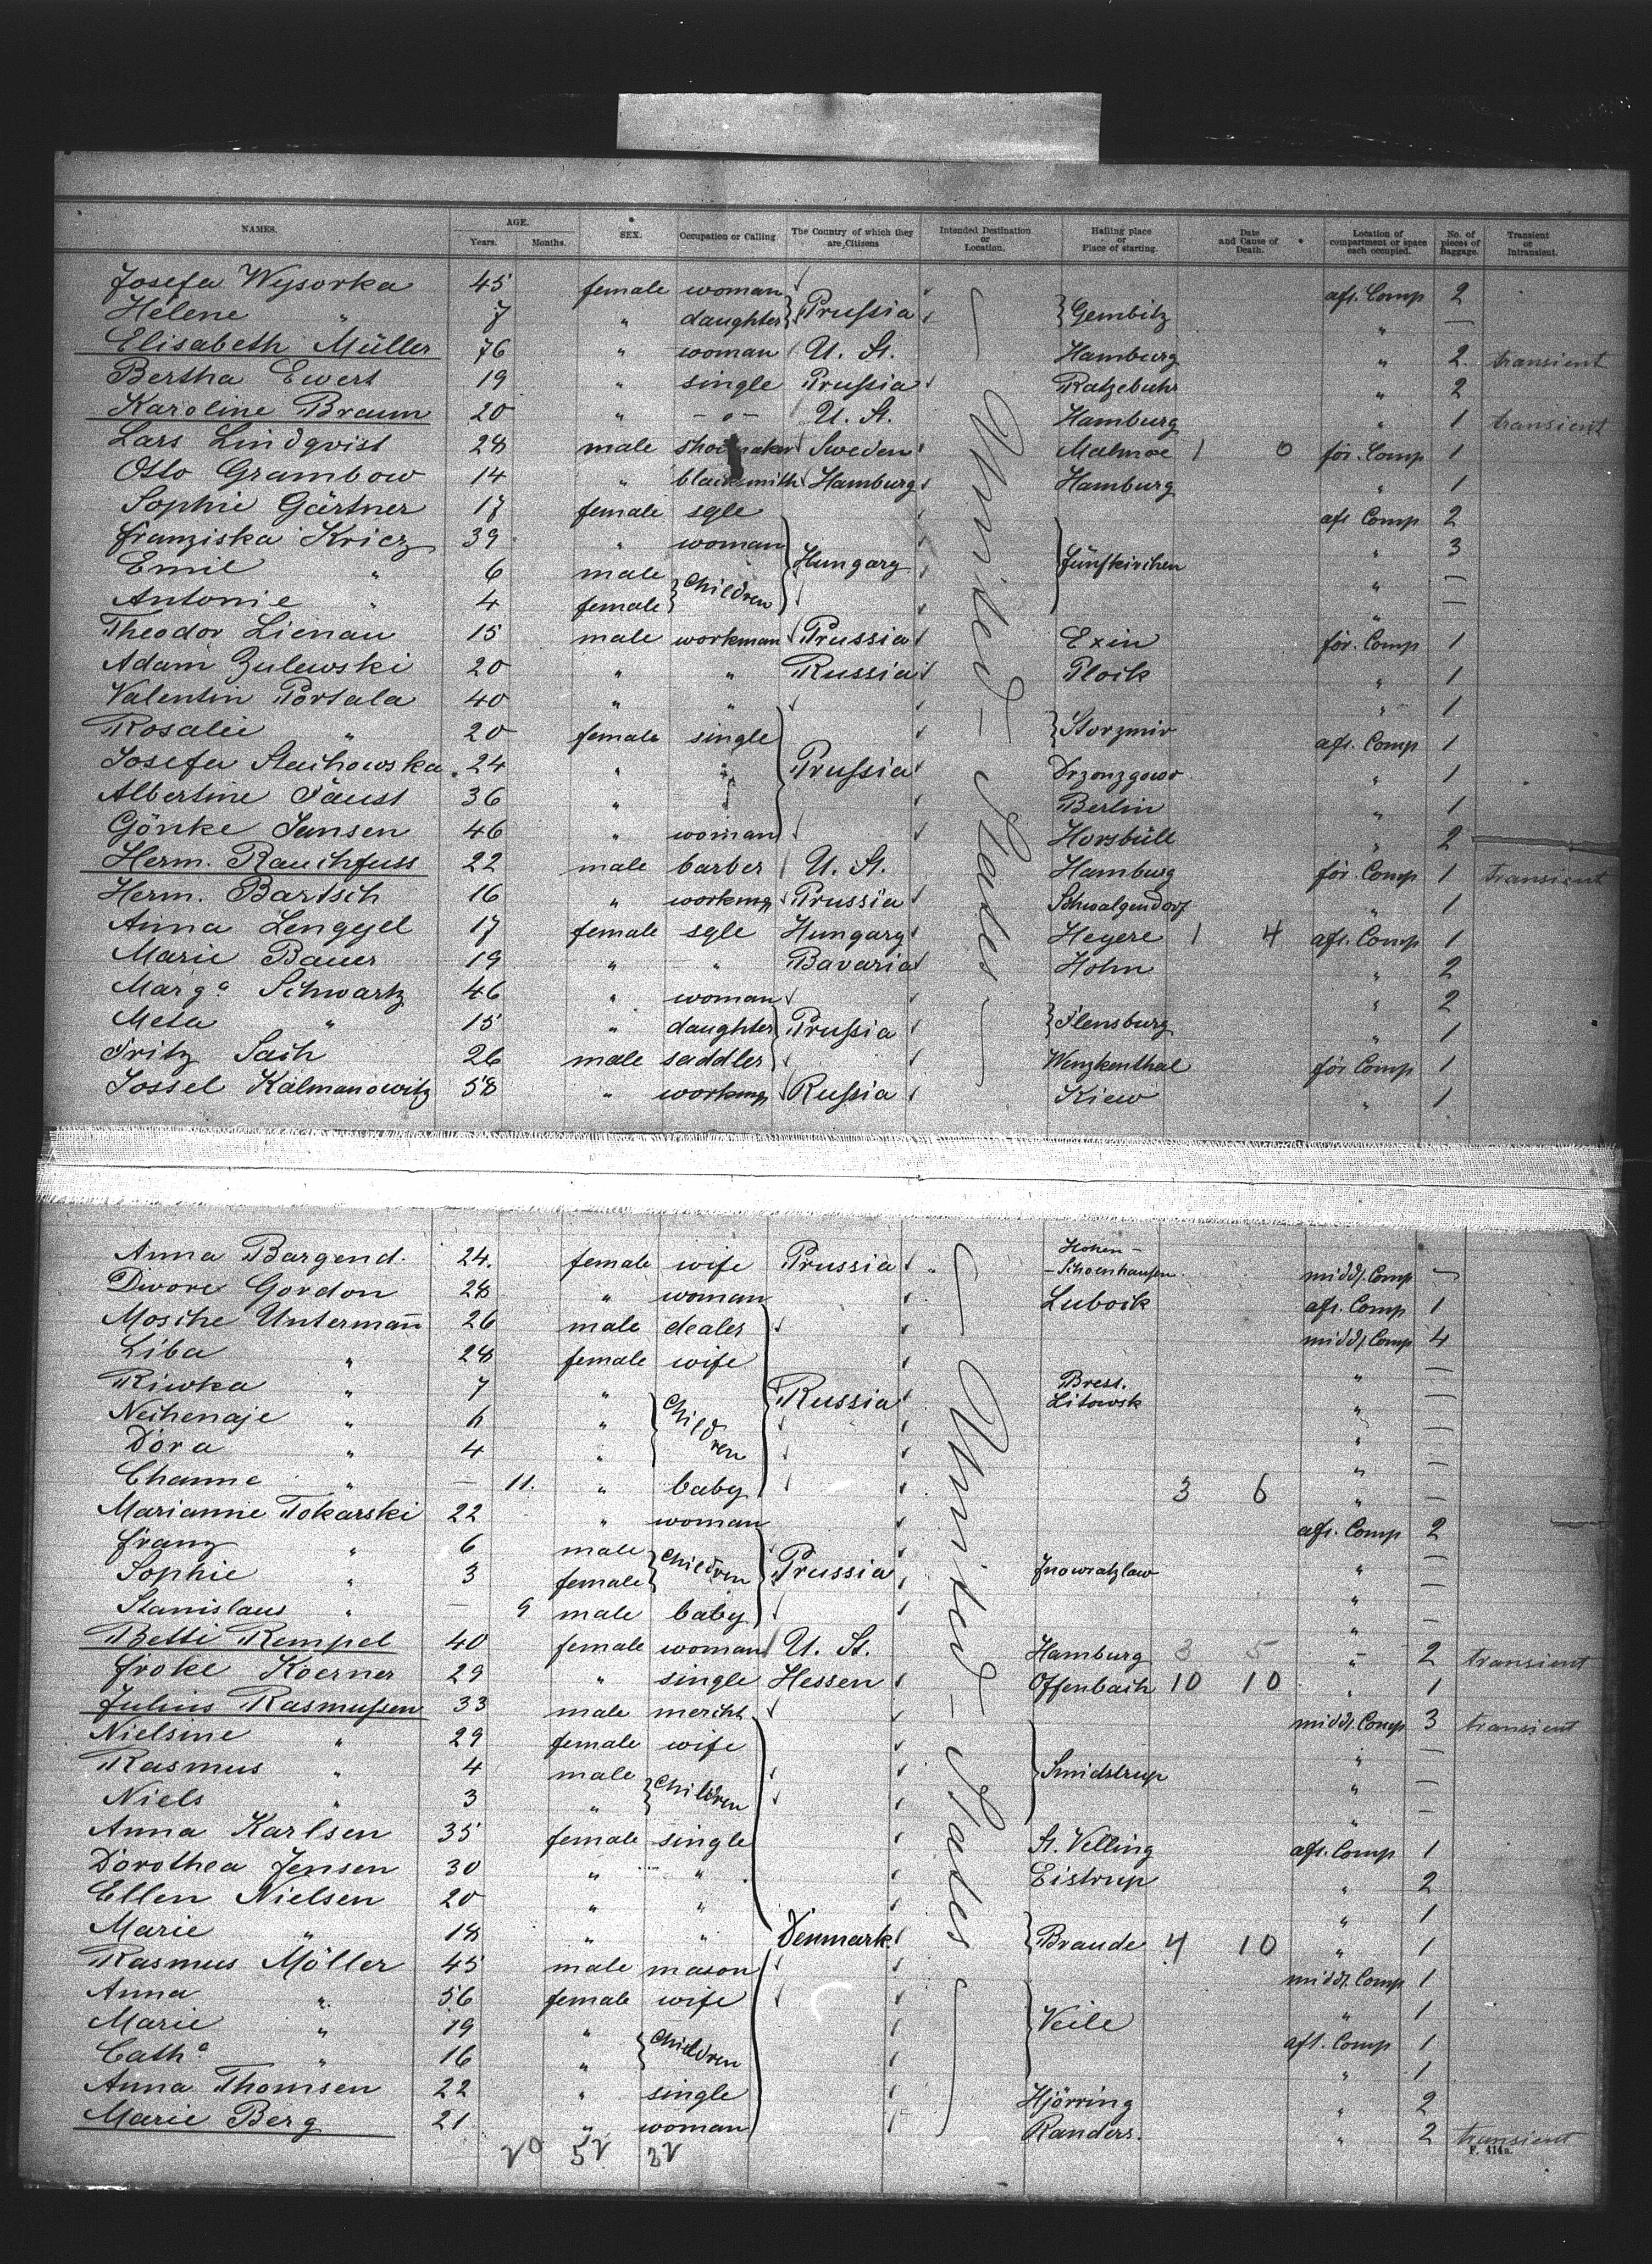 NAMES. AGE. SEX. Occupation or Calling The Country of which they are Citizens Intended Destination or Location. Hailing place or Place of starting. Date and Cause of Death. Location of compartment or space each occupied. No. of pieces of Baggage. Transient or Intransient.
Years. Months.
Josefa Wysorka 45 female woman aft. Comp 2
Helene " 7 " daughter } Prussia } Gembitz " —
Elisabeth Müller 76 " woman U. St. Hamburg " 2 transient
Bertha Ewert 19 " single Prussia Ratzebuhr " 2
Karoline Braum 20 " - " - U. St. Hamburg " 1 transient
Lars Lindqvist 28 male shoemaker Sweden Malmoe 1 0 for. Comp 1
Otto Grambow 14 " blacksmith Hamburg Hamburg " 1
Sophie Gärtner 17 female sgle aft Comp 2
Franziska Kricz 39 " woman } Hungary } Fünfkirchen " 3
Emil " 6 male } Children " —
Antonie " 4 female " —
Theodor Lienau 15 male workman Prussia Exin for. Comp 1
Adam Zulewski 20 " " Russia Plock " 1
Valentin Portala 40 " " " 1
Rosalie " 20 female single } Storzmir aft. Comp 1
Josefa Stachowska 24 " " Prussia Drzonzgowo " 1
Albertine Faust 36 " " Berlin " 1
Gönke Jansen 46 " woman Horsbüll " 2
Herm. Rauchfuss 22 male barber U. St. Hamburg for. Comp 1 transient
Herm. Bartsch 16 " workmn Prussia Schwalgendorf " 1
Anna Lengyel 17 female sgle Hungary Hegere 1 4 aft. Comp 1
Marie Bauer 19 " " Bavaria Hohn " 2
Marg.a Schwartz 46 " woman " 2
Meta " 15 " daughter } Prussia } Flensburg " 1
Fritz Sach 26 male saddler Wenzkenthal for Comp 1
Jossel Kalmanowitz 58 " workmn Russia Kiew " 1
— United - States —
Anna Bargend. 24. female wife Prussia Hohen-
-Schoenhausen middl. Comp —
Dwore Gordon 28 " woman Lubock aft. Comp 1
Mosche Untermañ 26 male dealer middl. Comp 4
Liba " 28 female wife —
Riwka " 7 " Russia Brest. Litowsk " —
Nechenaje " 6 " } Children " —
Dora " 4 " " —
Channe " — 11. " baby 3 6 " —
Marianne Tokarski 22 " woman aft. Comp 2
Franz " 6 male } Children } Prussia Inowratzlaw " —
Sophie " 3 female " —
Stanislaus " — 9 male baby " —
Betti Rempel 40 female woman U. St. Hamburg 3 5 " 2 transient
Froke Koerner 29 " single Hessen Offenbach 10 10 " 1
Julius Rasmussen 33 male mercht middl. Comp 3 transient
Nielsine " 29 female wife " —
Rasmus " 4 male } Children } Smidstrup " —
Niels " 3 " " —
Anna Karlsen 35 female single St. Velling aft. Comp 1
Dorothea Jensen 30 " " Eistrup " 2
Ellen Nielsen 20 " " " 1
Marie " 18 " " Denmark } Braude 4 10 " 1
Rasmus Möller 45 male mason middl. Comp 1
Anna " 56 female wife " 1
Marie " 19 " } Children } Veile aft. Comp 1
Cath.a " 16 " " 1
Anna Thomsen 22 " single Hjörring " 2
Marie Berg 21 " woman Randers. " 2 transient
— United - States —
20 52 32
F. 414a.